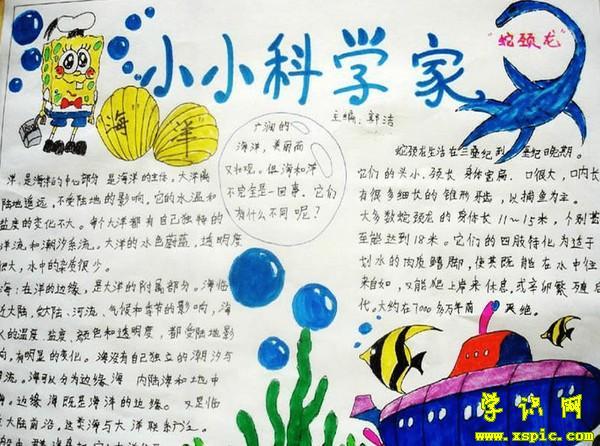 小小科学家
"蛇颈龙"
主编：郭洁
海
洋
广阔的
海洋，美丽而
又壮观。但海和洋
不完全是一回事，它们
有什么不同呢？
洋，是海洋的中心部分，是海洋的主体。大洋离
陆地遥远，不受陆地的影响。它的水温和
盐度的变化不大。每个大洋都有自己独特的
洋流和潮汐系统。大洋的水色蔚蓝，透明度
很大，水中的杂质很少。
海：在洋的边缘，是大洋的附属部分。海临
近大陆，受大陆、河流、气候和季节的影响，海
水的温度、盐度、颜色和透明度，都受陆地影
响，有明显的变化。海没有自己独立的潮汐与
海流。海可以分为边缘海 内陆海和地中
海。边缘海既是海洋的边缘，又是临
近大陆前沿，这类海与大洋联系
蛇颈龙生活在三叠纪到 垩纪晚期。
它们的头小、颈长、身体宽扁、口很大，口内长
有很多细长的锥形牙齿，以捕鱼为主。
大多数蛇颈龙的身体长11～15米，个别甚
至能达到18米。它们的四肢特化为适于
划水的肉质鳍脚，使其既能在水中往
来自如，又能爬上岸来休息或产卵繁殖后
代。大约在7000多万年前 灭绝。
学识网
www.xspic.com